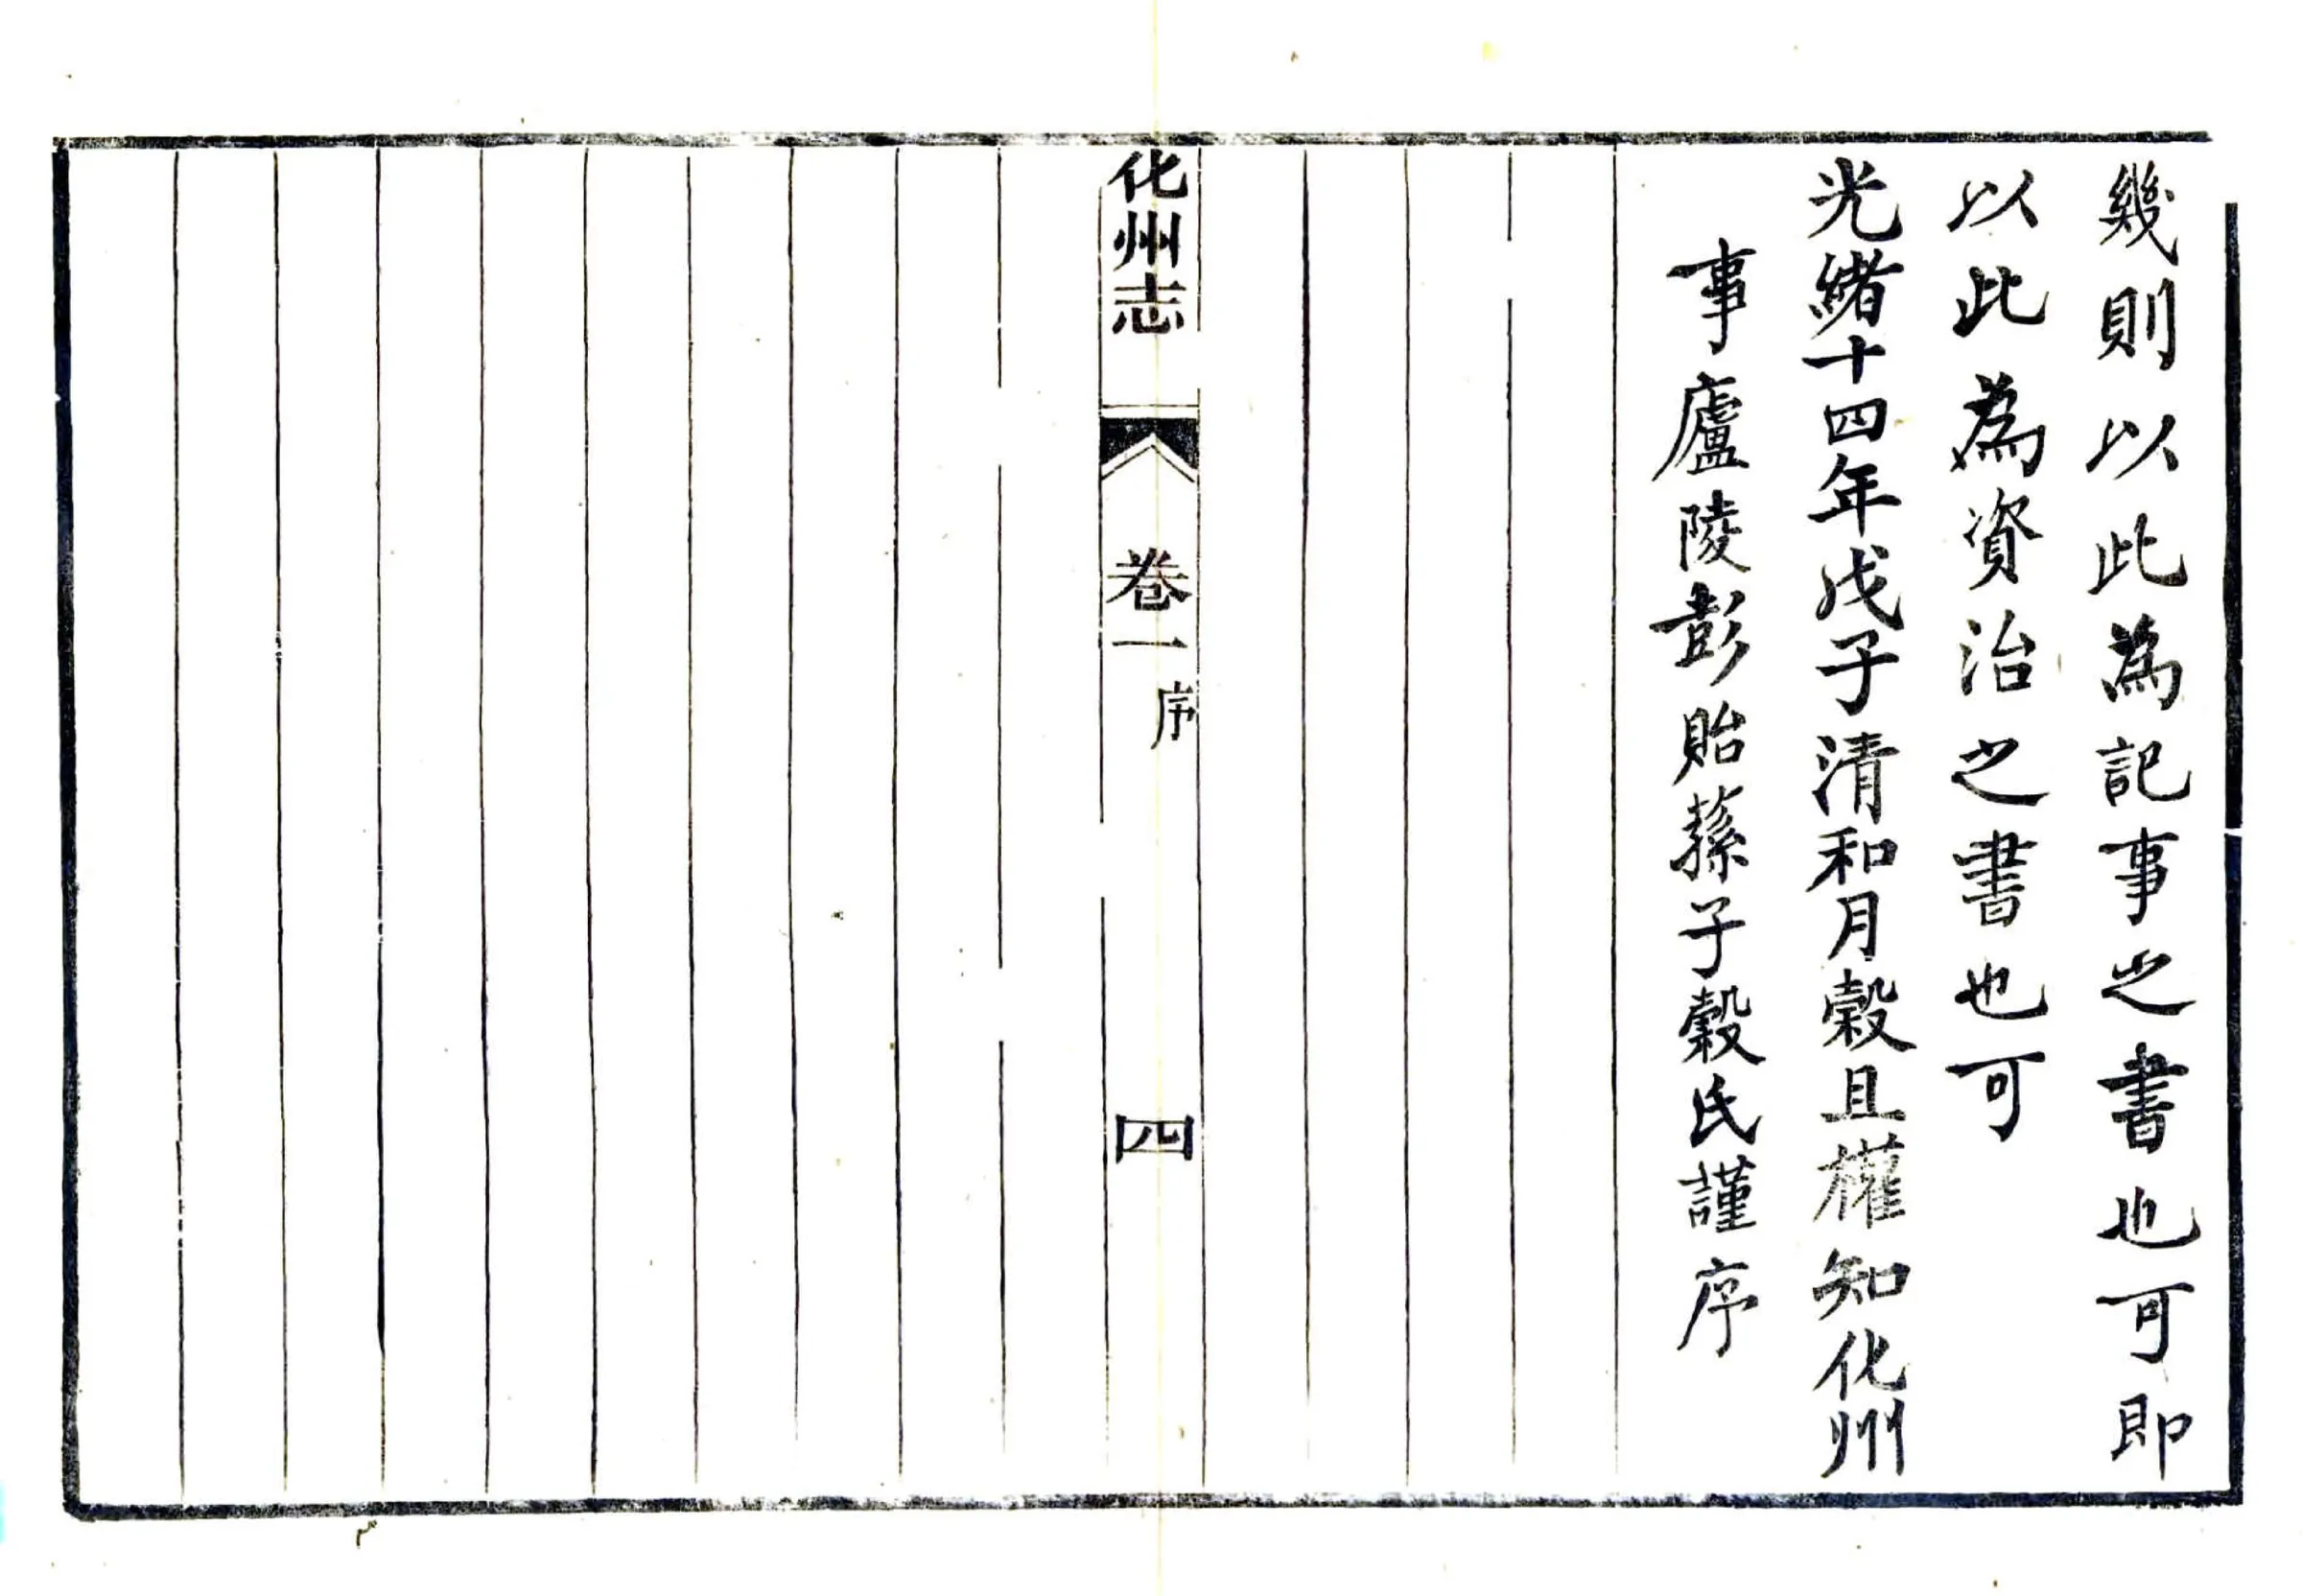 幾則以此為記事之書也可即
以此為資治之書也可
光緒十四年戊子清和月穀且權知化州
事廬陵彭貽蓀子穀氏謹序
化州志
卷一
序
四